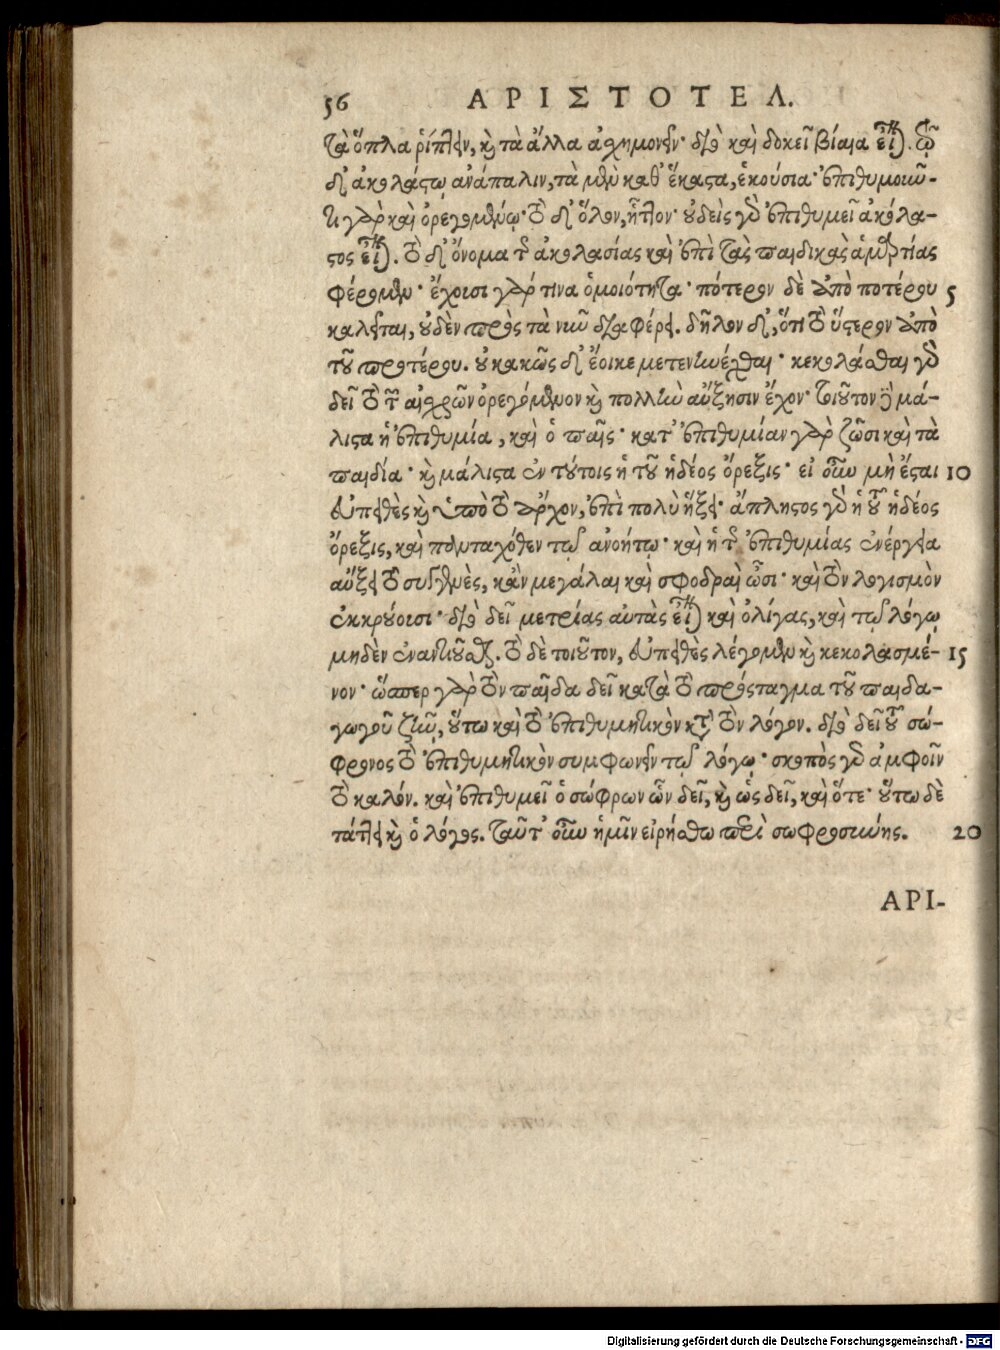 56 ΑΡΙΣΤΟΤΕΛ.
τὰ ὅπλα ῥίπτειν, καὶ τὰ ἄλλα ἀσχημονεῖν· διὸ καὶ δοκεῖ βίαια εἶναι. τῷ
δ' ἀκολάστῳ ἀνάπαλιν, τὰ μὲν καθ' ἕκαστα, ἑκούσια· ἐπιθυμοῦν-
τι γὰρ καὶ ὀρεγομένῳ· τὸ δ' ὅλον, ἧττον· οὐδεὶς γὰρ ἐπιθυμεῖ ἀκόλα-
στος εἶναι. τὸ δ' ὄνομα τῆς ἀκολασίας καὶ ἐπὶ τὰς παιδικὰς ἁμαρτίας
φέρομεν· ἔχουσι γάρ τινα ὁμοιότητα· πότερον δὲ ἀπὸ ποτέρου 5
καλεῖται, οὐδὲν πρὸς τὰ νῦν διαφέρει. δῆλον δ', ὅτι τὸ ὕστερον ἀπὸ
τοῦ προτέρου. οὐ κακῶς δ' ἔοικε μετενηνέχθαι· κεκολάσθαι γὰρ
δεῖ τὸ τῶν αἰσχρῶν ὀρεγόμενον καὶ πολλὴν αὔξησιν ἔχον· τοιοῦτον δὲ μά-
λιστα ἡ ἐπιθυμία, καὶ ὁ παῖς· κατ' ἐπιθυμίαν γὰρ ζῶσι καὶ τὰ
παιδία· καὶ μάλιστα ἐν τούτοις ἡ τοῦ ἡδέος ὄρεξις· εἰ οὖν μὴ ἔσται 10
εὐπειθὲς καὶ ὑπὸ τὸ ἄρχον, ἐπὶ πολὺ ἥξει· ἄπληστος γὰρ ἡ τοῦ ἡδέος
ὄρεξις, καὶ πανταχόθεν τῷ ἀνοήτῳ· καὶ ἡ τῆς ἐπιθυμίας ἐνέργεια
αὔξει τὸ συγγενὲς, κἂν μεγάλαι καὶ σφοδραὶ ὦσι· καὶ τὸν λογισμὸν
ἐκκρούουσι· διὸ δεῖ μετρίας αὐτὰς εἶναι καὶ ὀλίγας, καὶ τῷ λόγῳ
μηδὲν ἐναντιοῦσθαι. τὸ δὲ τοιοῦτον, εὐπειθὲς λέγομεν καὶ κεκολασμέ- 15
νον· ὥσπερ γὰρ τὸν παῖδα δεῖ κατὰ τὸ πρόσταγμα τοῦ παιδα-
γωγοῦ ζῆν, οὕτω καὶ τὸ ἐπιθυμητικὸν κατὰ τὸν λόγον. διὸ δεῖ τοῦ σώ-
φρονος τὸ ἐπιθυμητικὸν συμφωνεῖν τῷ λόγῳ· σκοπὸς γὰρ ἀμφοῖν
τὸ καλόν. καὶ ἐπιθυμεῖ ὁ σώφρων ὧν δεῖ, καὶ ὡς δεῖ, καὶ ὅτε· οὕτω δὲ
τάττει καὶ ὁ λόγος. Ταῦτ' οὖν ἡμῖν εἰρήσθω περὶ σωφροσύνης. 20
ΑΡΙ-
Digitalisierung gefördert durch die Deutsche Forschungsgemeinschaft - DFG